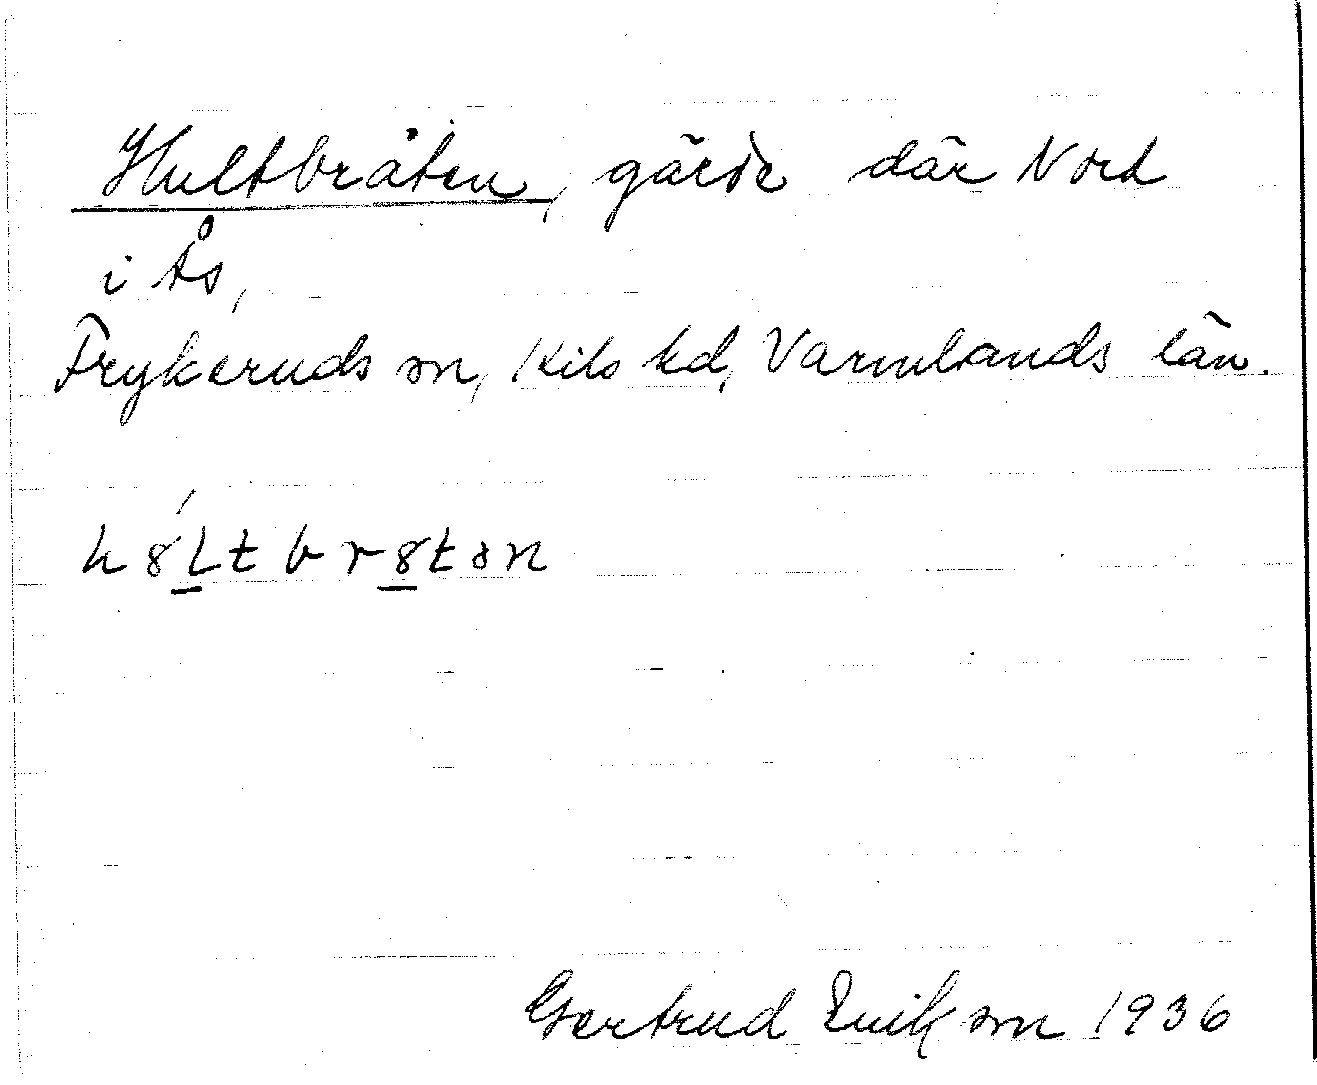 Hultbråten, gärde där Nord
i Ås,
Frykeruds sn, Kils hd, Värmlands län.
h8́Ltbr8tən
Gertrud Erikson 1936